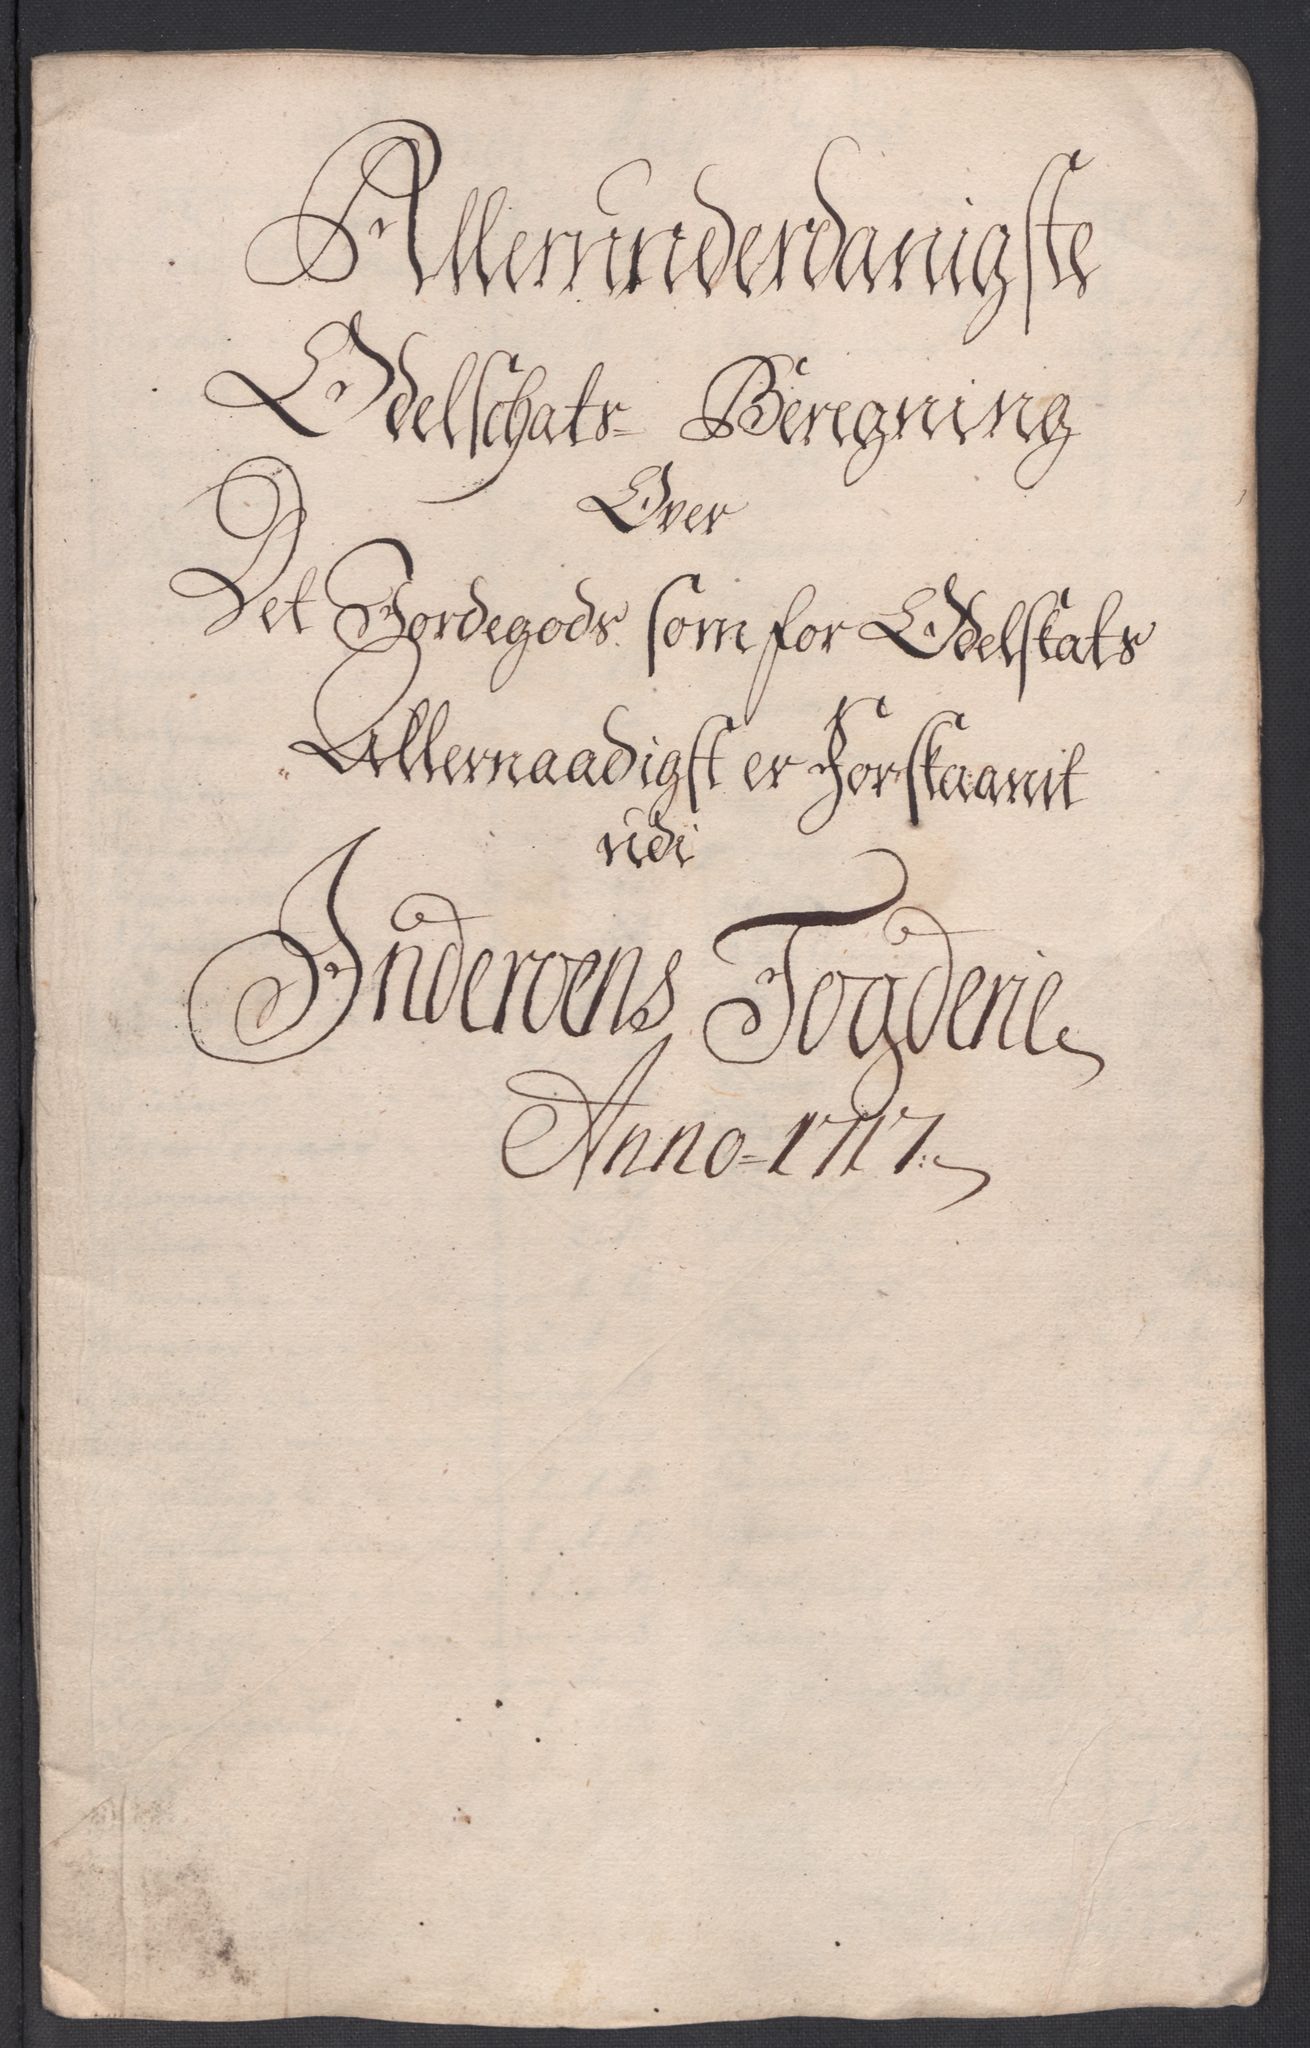 Allerunderdanigste
Odelschats- Beregning
Over
Det Jordegods som for Odelskats
Allernaadigst er Forskaanit
udi
Inderoens Fogderie
Anno= 1717.